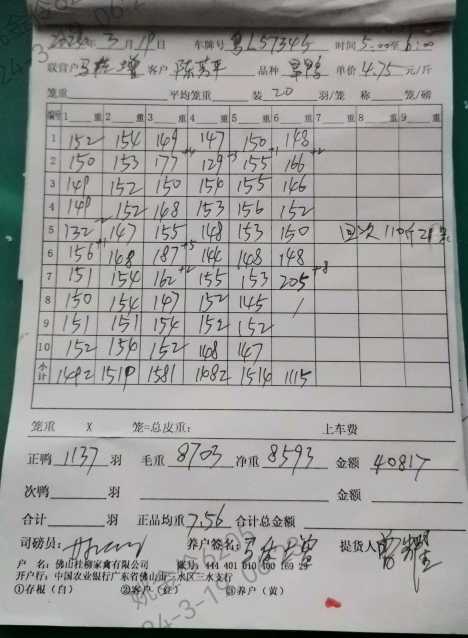 2024年3月19日 车牌号 粤L57345 时间5:00至6:00
联营户 客户 陈芳平 品种 单价4.75元/斤
笼重 平均笼重 装20羽/笼 称 笼/磅
编号 1 重 2 重 3 重 4 重 5 重 6 重 7 重 8 重 9 重
1 152 154 149 147 150 148
2 150 153 177 +4 129 +3 155 +1 166 +2
3 149 152 150 154 155 146
4 149 152 148 153 156 152
5 132 -2 147 155 148 153 150
6 156 +1 148 187 +5 144 148 148
7 151 154 162 +2 155 153 205 +8
8 150 154 147 152 145 /
9 151 151 154 152 152
10 152 154 152 148 147
小计 1492 1519 1581 1482 1514 1115
笼重 X 笼=总皮重: 上车费
正鸭1137羽 毛重8703 净重8593 金额40817
次鸭 羽 金额
合计 羽 正品均重7.56 合计总金额
司磅员: 养户签名: 提货人
户 名:佛山桂柳家禽有限公司 账号:444 401 010 400 169 29
开户行:中国农业银行广东省佛山市三水区三水支行
①存根(白) ②客户(红) ③养户(黄)